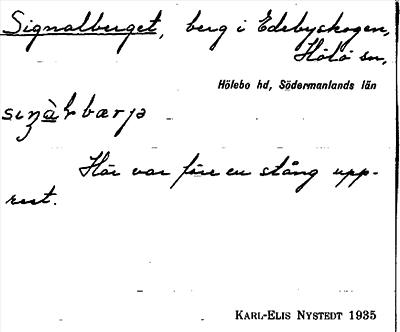 Signalberget, berg i Edebyskogen,
Hölö sn,
Hölebo hd, Södermanlands län
Här var förr en stång upp-
rest.
KARL-ELIS NYSTEDT 1935